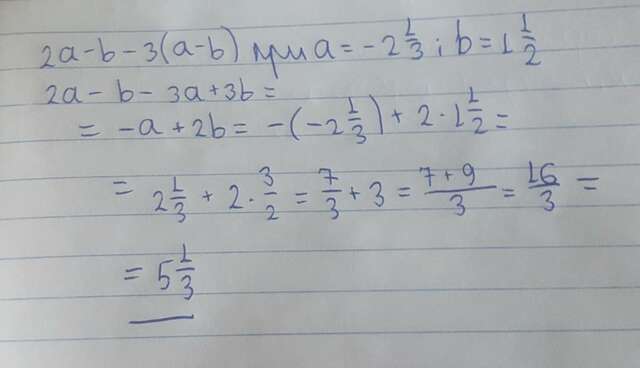 2a-b-3(a-b) при a=-2 1/3 i b=1 1/2
2a-b-3a+3b=
=-a+2b=-(-2 1/3)+2·1 1/2=
=2 1/3+2·3/2=7/3+3=(7+9)/3=16/3=
=5 1/3